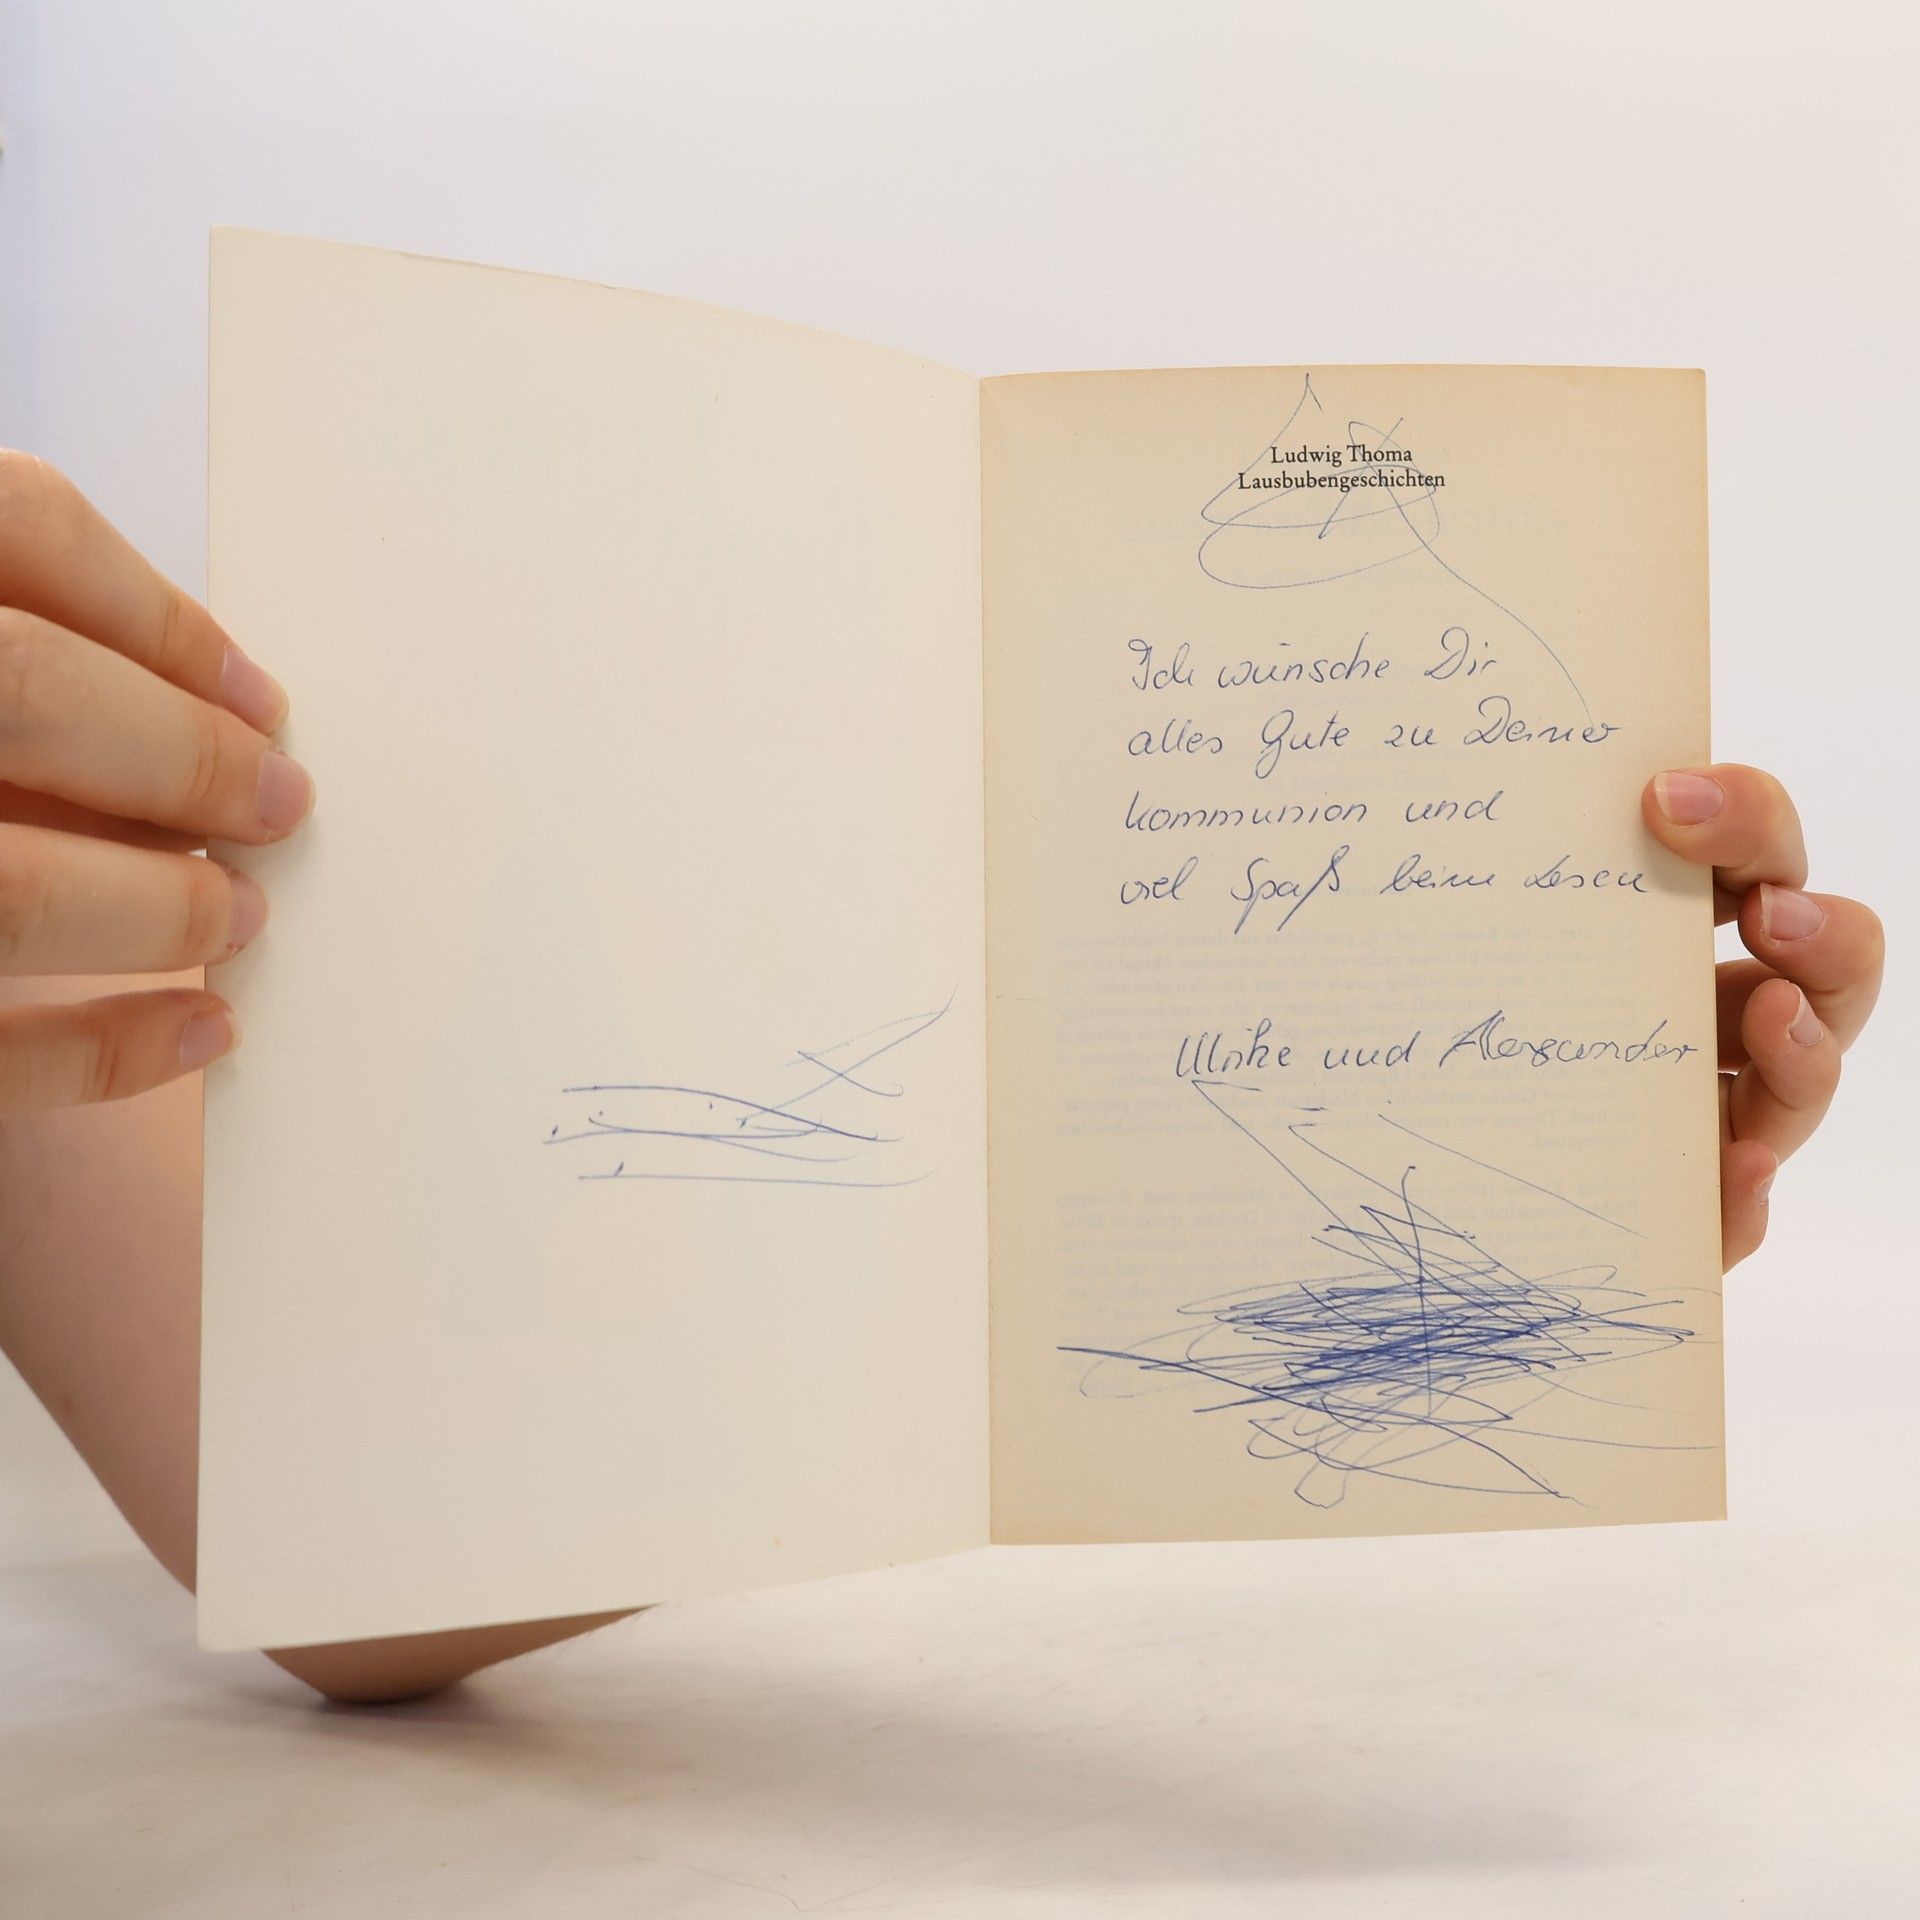 Ludwig Thoma
Lausbubengeschichten
Ich wünsche Dir
alles Gute zu Deiner
Kommunion und
viel Spaß beim Lesen
Ulrike und Alexander